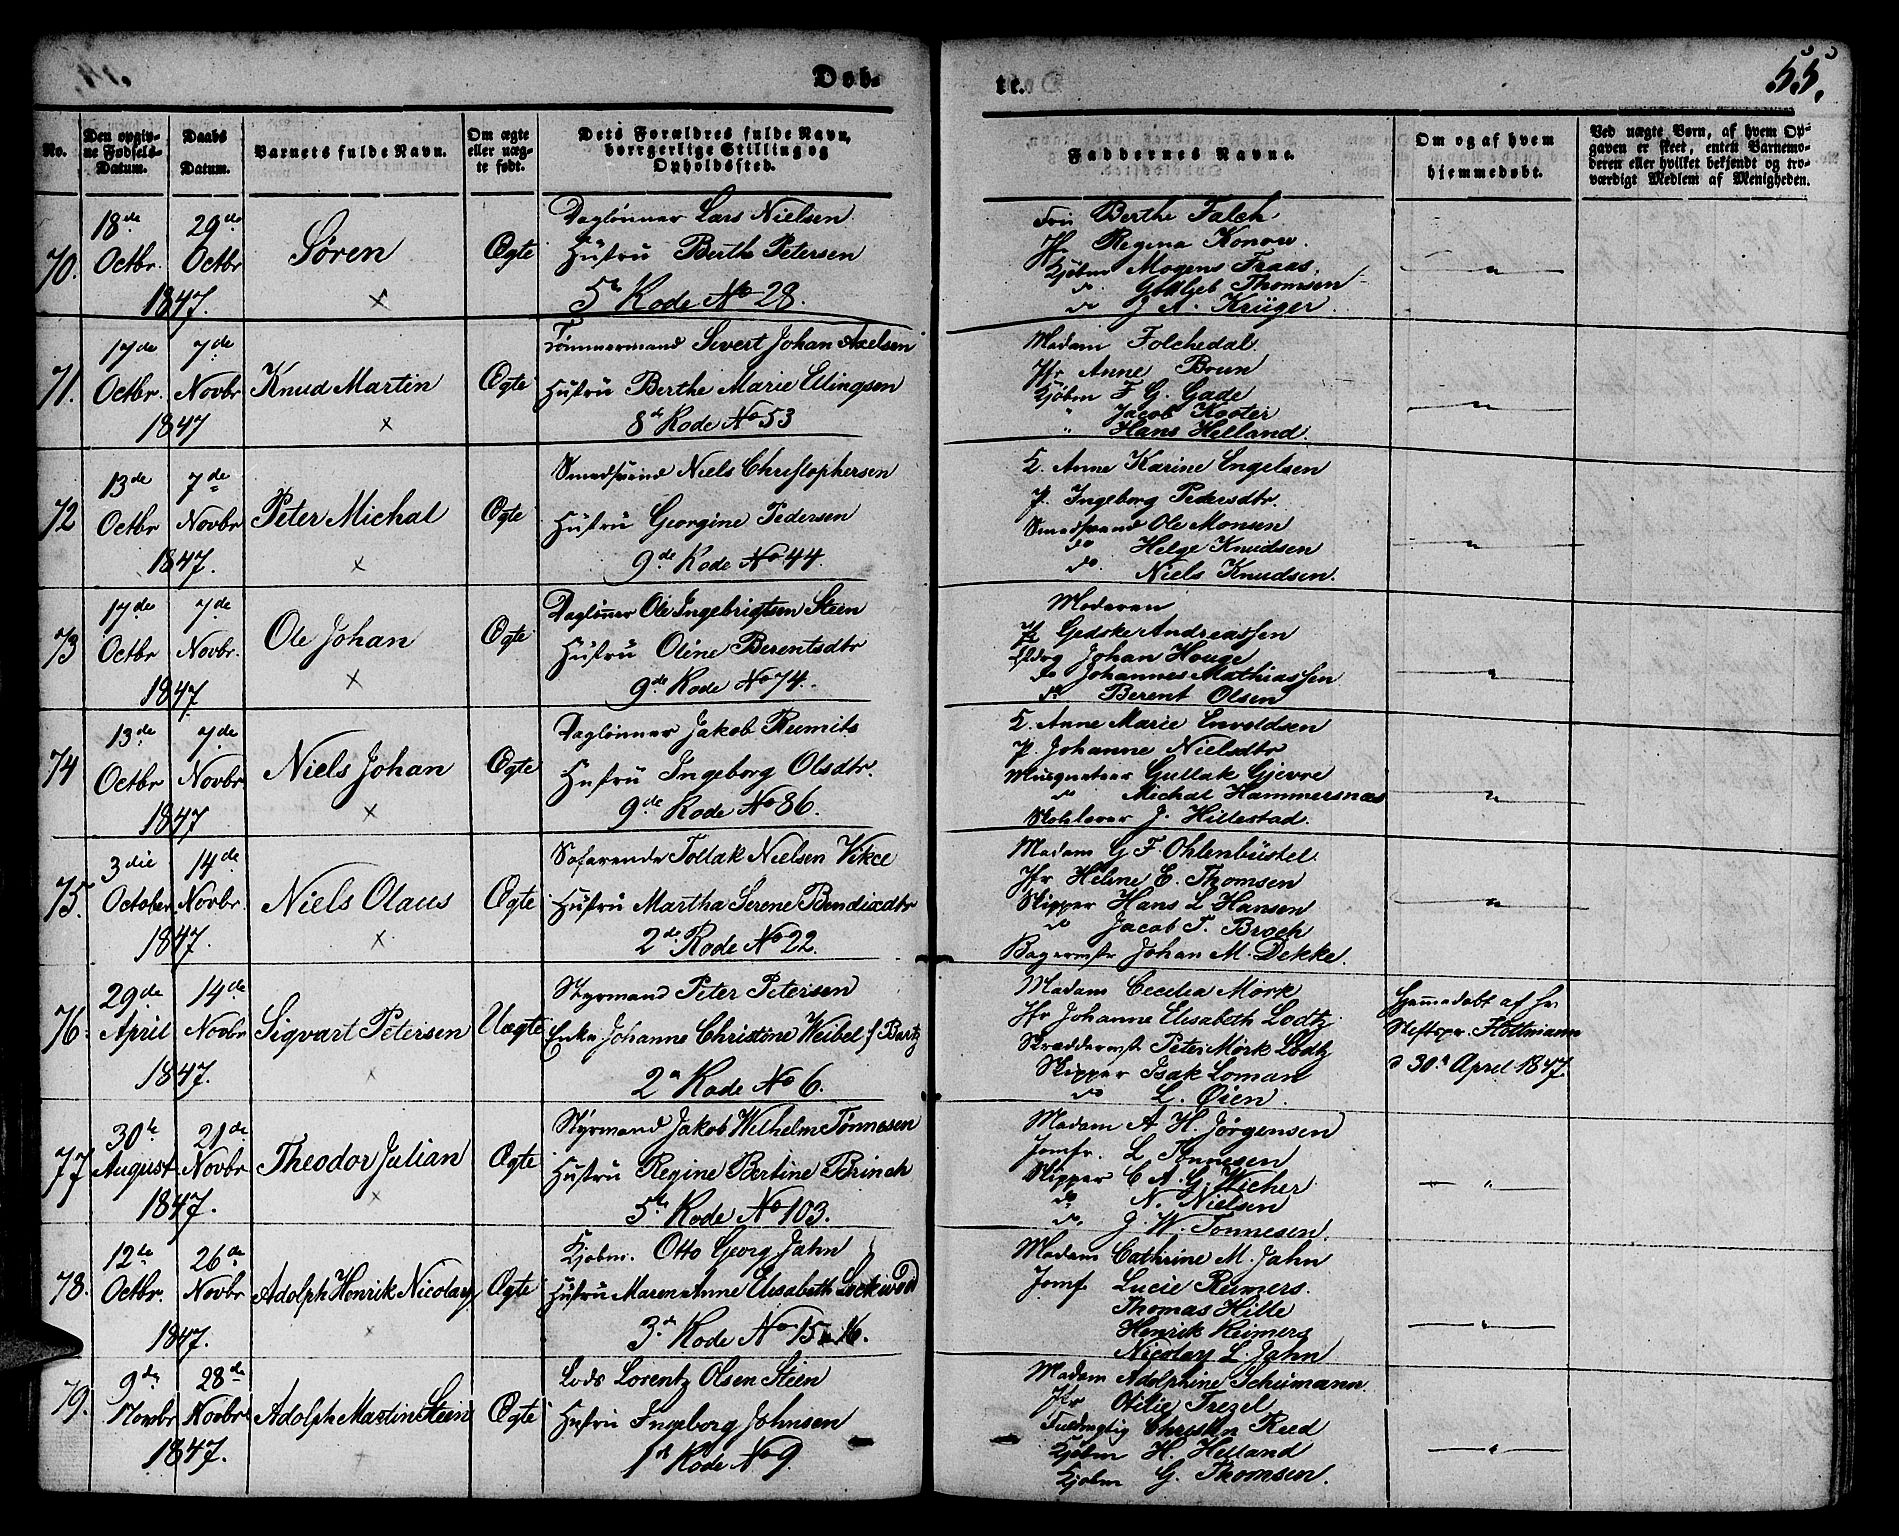 Døb-
te.
55.
No.
Den opgiv-
ne Fødsels-
Datum.
Daabs
Datum.
Barnets fulde Navn.
Om ægte
eller uæg-
te født.
Dets Forældres fulde Navn,
borgerlige Stilling og
Opholdssted.
Faddernes Navne.
Om og af hvem
hjemmedøbt.
Ved uægte Børn, af hvem Op-
gaven er skeet, enten Barnemo-
deren eller hvilket bekjendt og tro-
værdigt Medlem af Menigheden.
70.
18de
Octbr.
29de
Octbr
1847.
Søren
×
Ægte
Daglønner Lars Nielsen
Hustru Berthe Petersen
5te Rode No 28.
Fru Berthe Falch
Jfr Regina Konow.
Kjøbm Mogens Fraas.
do Gottlieb Thomsen
do J N. Krüger
71.
17de
Octbr.
7de
Novbr
1847
Knud Martin
×
Ægte
Tømmermand Sivert Johan Axelsen
Hustru Berthe Marie Ellingsen
8de Rode No 53
Madam Folchedal.
Jfr Anne Brun
Kjøbm F. G. Gade
" Jacob Kooter
" Hans Helland.
72
13de
Octbr
7de
Novbr
1847.
Peter Michal
×
Ægte
Smedsvend Niels Christophersen
Hustru Georgine Pedersen
9de Rode No 44.
K. Anne Karine Engelsen
P. Ingeborg Pedersdtr.
Smedsvend Ole Monsen
do Helge Knudsen
do Niels Knudsen.
73
17de
Octbr
7de
Novbr.
1847
Ole Johan
×
Ægte
Daglønner Ole Ingebrigtsen Steen
Hustru Oline Berentsdtr
9de Rode No 74.
Moderen
P. Gedske Andreassen
Johan Houge
do Johannes Mathiassen
do Berent Olsen
74
13de
Octbr
7de
Novbr
1847
Niels Johan
×
Ægte
Daglønner Jakob Reumits
Hustru Ingeborg Olsdtr.
9de Rode No 86.
K. Anne Marie Envoldsen
P. Johanne Nielsdtr
Musqueteer Gullak Gjevre
do Michal Hammersnæs
J. Hillestad.
75.
3die
October
14de
Novbr.
1847.
Niels Olaus
×
Ægte
Søfarende Tollak Nielsen Vikce
Hustru Martha Serene Bendixdtr
2de Rode No 22.
Madam G F. Ohlenbüstel.
Jfr Helene E. Thomsen
Skipper Hans L Hansen
do Jacob T. Broch
Bagermstr Johan M. Dekke.
76.
29de
April
14de
Novbr
1847.
Sigvart Petersen
×
Uægte
Styrmand Peter Petersen
Enke Johanne Christone Weibel f Bartz
2n Rode No 6.
Madam Cecilia Mörk
Jfr Johanne Elisabeth Lodtz
Skræddermstr Peter Mørk Lodtz
Skipper Isak Loman
do L. Øien.
Hjemmedøbt af Hr
Stiftspr. Flottmann
d 30te April 1847.
77
30te
August
21de
Novbr
1847.
Theodor Julian
×
Ægte
Styrmand Jakob Wilhelm Tønnesen
Hustru Regine Bertine Brinch
5te Rode No 103.
Madam A H. Jørgensen
Jomfr. L Tønnesen
Skipper C A. G. Wicher
do N. Nielsen
do J. W. Tonnesen.
78.
12te
Octbr.
26de
Novbr
1847.
Adolph Henrik Nicolay
×
Ægte
Kjøbm. Otto Georg Jahn
Hustru Maren Anne Elisabeth Lockwod
3de Rode No 15 & 16.
Madam Cathrine M. Jahn
Jomf. Lucie Reimers.
Thomas Hille
Henrik Reimers
Nicolay L. Jahn
79.
9de
Novbr
28de
Novbr
1847.
Adolph Martin Steen
×
Ægte
Lods Lorentz Olsen Steen
Hustru Ingeborg Johnsen
1ste Rode No 9.
Madam Adolphine Schumann.
Jfr Otilie Trezel
Fuldmegtig Christen Reed
Kjøbm H. Helland
Kjøbm G. Thomsen.